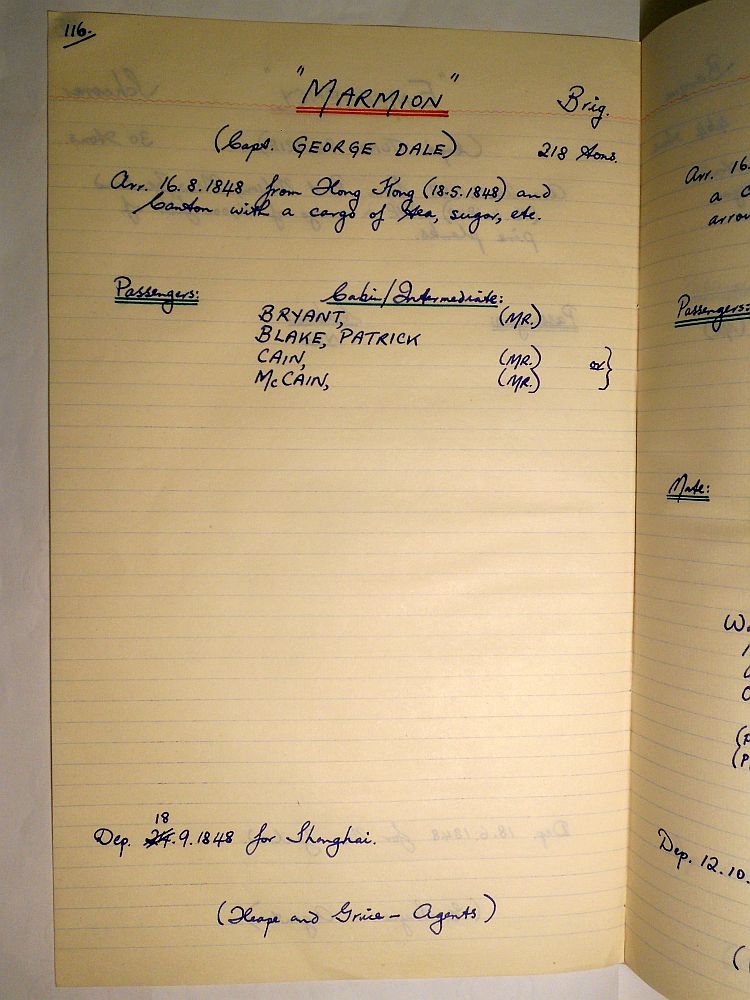 116.
"MARMION"
Brig.
(Capt. GEORGE DALE)
218 tons.
Arr. 16.8.1848 from Hong Kong (18.5.1848) and
Canton with a cargo of tea, sugar, etc.
Passengers:
Cabin/Intermediate:
BRYANT, (MR.)
BLAKE, PATRICK
CAIN, (MR.) or }
McCAIN, (MR.)
18
Dep. 24.9.1848 for Shanghai.
(Heape and Grice - Agents)
Arr. 16.
a c
arrow
Passengers:
Mate:
Dep. 12.10.